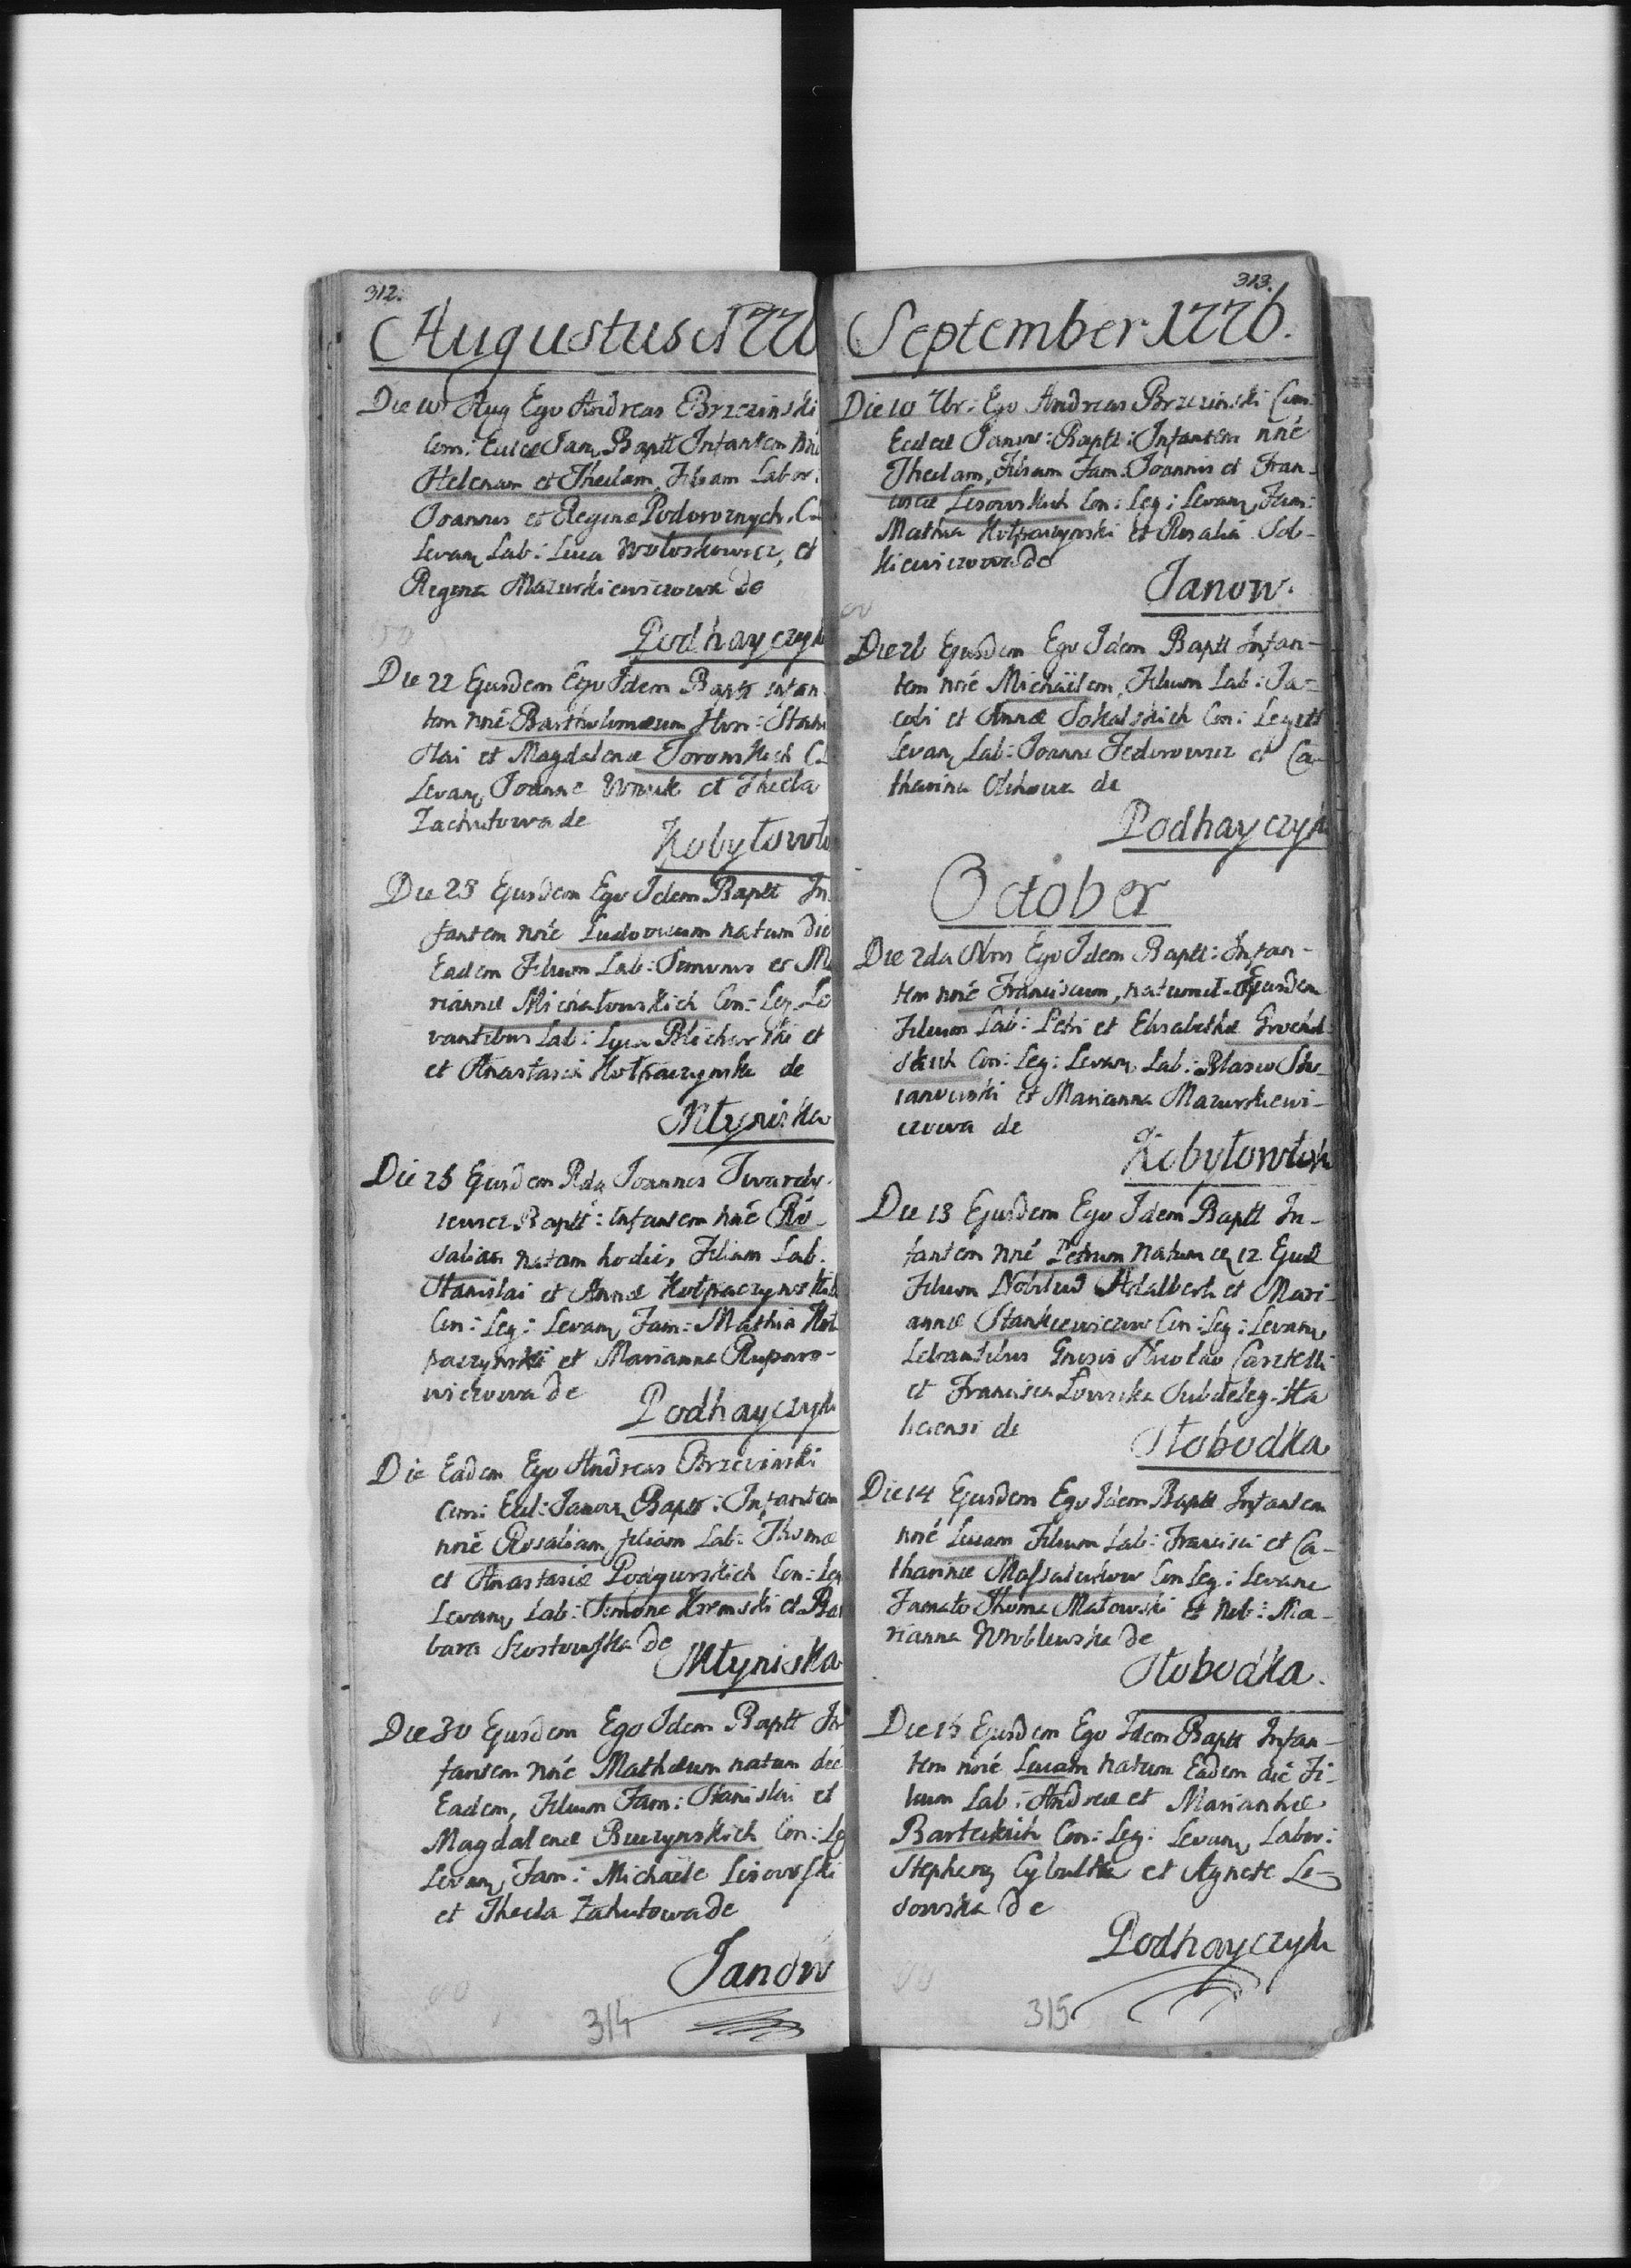 312.
Augustus 1776
Die 10 Aug Ego Andreas Brzezinski
Com: Eccl Jan Baptt Infantem
Helenam et Theclam, Filiam Labor:
Joannis et Regina Podoroznych, C
Levan Lab: Luca Wołoskowicz, et
Regina Mazurkiewiczowa de
Podhayczyk
Die 22 Ejusdem Ego Idem Baptt infan
tem nné Bartholomaeum Hon: Stani
slai et Magdalenæ Toronskich C
Levan Joanne Wnuk et Thecla
Zachutowa de
Kobyłowło
Die 23 Ejusdem Ego Idem Baptt In
fantem nné Ludovicum natum die
Eadem Filium Lab: Simonis et M
riannæ Michałowskich Con: Leg: Le
vantibus Lab: Luca Blicharski et
et Anastasia Kołpaczynska de
Młyniska
Die 25 Ejusdem Rdq Joannes Twardy
iewicz Baptt: infantem nné Ro
saliam natam hodie, Filiam Lab.
Stanislai et Annæ Kołpaczynskich
Con: Leg: Levan Fam: Mathia Koł
paczynski et Marianna Ruparo-
wiczowa de
Podhayczyk
Die Eadem Ego Andreas Brzezinski
Com: Eccl: Janov Baptt: Infantem
nné Rosaliam filiam Lab: Thomæ
et Anastasiæ Podgurskich Con: Leg
Levan Lab: Simone Kremski et Bar
bara Szostowska de
Młyniska
Die 30 Ejusdem Ego Idem Baptt In
fantem nné Mathæum natum die
Eadem, Filium Fam: Stanislai et
Magdalenæ Buczynskich Con: Leg
Levan Fam: Michaele Lisowski
et Thecla Zahutowa de
Janow
314
313.
September 1776.
Die 10 7br: Ego Andreas Brzezinski Com:
Eccliæ Janov: Baptt: Infantem nné
Theclam, Filiam Fam: Joannis et Fran-
ciscæ Lisowskich Con: Leg: Levan Fam:
Mathia Kołpaczynski et Rosalia Sob-
kiewiczowa de
Janow.
Die 26 Ejusdem Ego Idem Baptt Infan-
tem nné Michaëlem, Filium Lab: Ja-
cobi et Annæ Sokalskich Con: Legitt
Levan Lab: Joanne Fedorowicz et Ca-
tharina Olchowa de
Podhayczyk
October
Die 2da 8bris Ego Idem Baptt: Infan-
tem nné Franciscum, natum 1 Ejusdem
Filium Lab: Petri et Elisabethæ Grochol
skich Con: Leg: Levan Lab: Blasio Stu-
ianowski et Marianna Mazurkiewi-
czowa de
Kobyłowłok
Die 13 Ejusdem Ego Idem Baptt In-
fantem nné Petrum natum 12 Ejusd
Filium Nobilium Adalberti et Mari-
annæ Stankiewiczow Con: Leg: Levan
Levantibus Gnosis Nicolao Casztelli
et Francisca Lowska Subdeleg. Ha
liciensi de
Słobodka
Die 14 Ejusdem Ego Idem Baptt Infantem
nné Lucam Filium Lab: Francisci et Ca-
tharinæ Massalukow Con Leg: Levane
Famato Thoma Małowski et Nob: Ma-
rianna Wroblewska de
Słobodka.
Die 15 Ejusdem Ego Idem Baptt Infan-
tem nné Lucam natum Eadem die Fi-
lium Lab: Andreæ et Mariannæ
Barteckich Con: Leg: Levan Labor:
Stephan Cybulka et Agnete Le-
sowska de
Podhayczyk
315